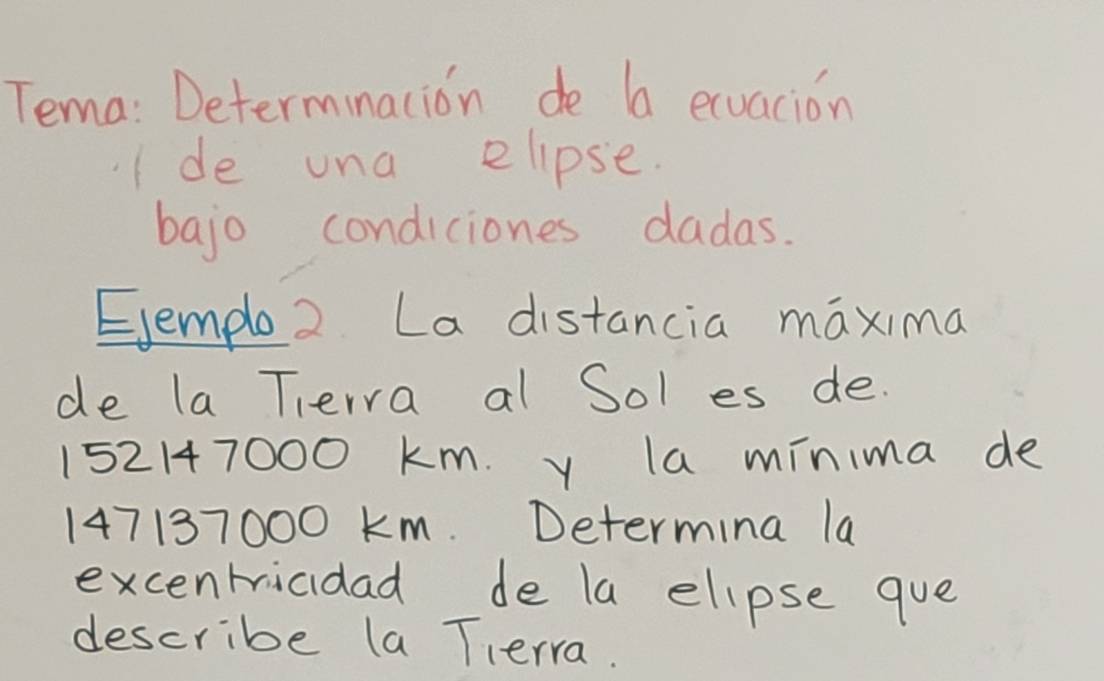 Tema: Determinación de la ecuación
de una elipse.
bajo condiciones dadas.
Ejemplo 2. La distancia máxima
de la Tierra al Sol es de.
152147000 km. y la mínima de
147137000 km. Determina la
excentricidad de la elipse que
describe la Tierra.